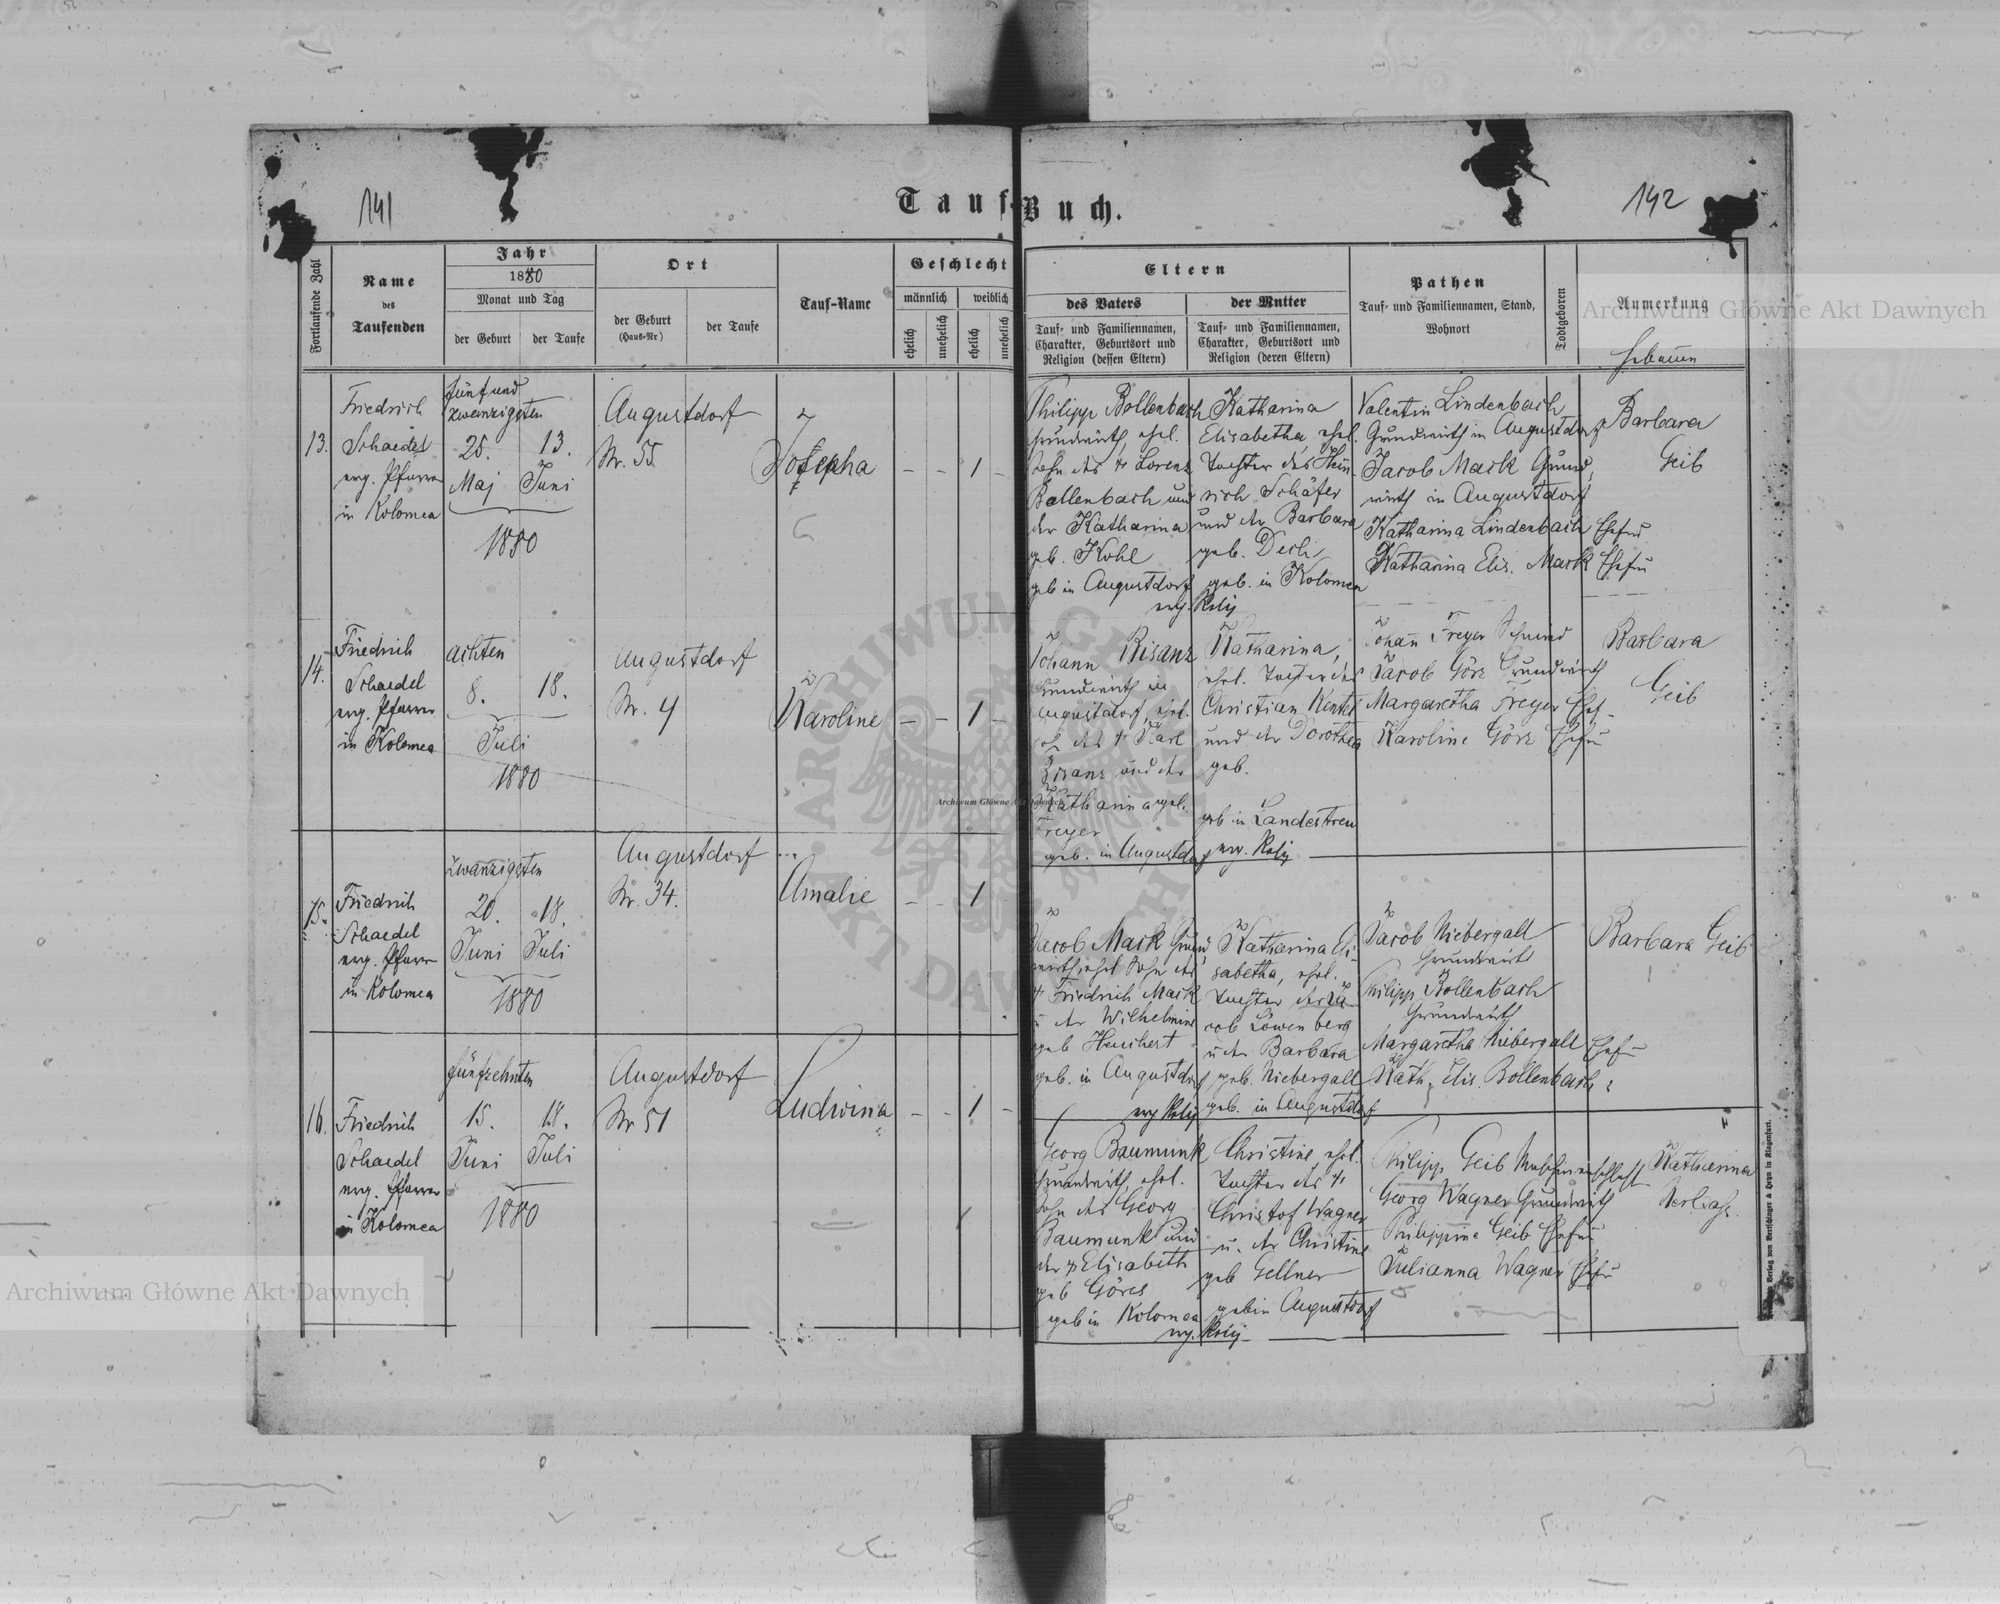 141
Tauf-Buch.
142
Fortlaufende Zahl
Name
des
Taufenden
Jahr
1880
Monat und Tag
der Geburt
der Taufe
Ort
der Geburt
(Haus-Nr)
der Taufe
Tauf-Name
Geschlecht
männlich
weiblich
ehelich
unehelich
ehelich
unehelich
Eltern
des Vaters
Tauf- und Familiennamen,
Charakter, Geburtsort und
Religion (dessen Eltern)
der Mutter
Tauf- und Familiennamen,
Charakter, Geburtsort und
Religion (deren Eltern)
Pathen
Tauf- und Familiennamen, Stand,
Wohnort
Todtgeboren
Anmerkung
Hebamm
13.
Friedrich
Schaedel
evg. Pfarrer
in Kolomea
fünfund
zwanzigsten
25.
13.
Maj
Juni
1880
Augustdorf
Nr. 55
Josepha
- - 1 -
Philipp Bollenbach
Grundwirth, ehel.
Sohn des † Lorenz
Bollenbach und
der Katharina
geb. Kohl
geb in Augustdorf
evg. Relig
Katharina
Elisabetha ehel.
Tochter des Hein
rich Schäfer
und der Barbara
geb. Desch
geb. in Kolomea
Valentin Lindenbach
Grundwirth in Augustdorf
Jacob Mack Grund
wirth in Augustdorf
Katharina Lindenbach Ehefr
Katharina Elis. Mack Ehefr
Barbara
Geib
14.
Friedrich
Schaedel
evg. Pfarrer
in Kolomea
achten
8.
18.
Juli
1880
Augustdorf
Nr. 4
Karoline
- - 1 -
Johann Risanz
Grundwirth in
Augustdorf, ehel.
Soh des † Karl
Risanz und der
Katharina geb.
Freyer
geb. in Augustdorf
evg. Relig
Katharina,
ehel. Tochter des
Christian Kentel
und der Dorothea
geb.
geb in Landestreu
Johann Freyer Schmied
Jacob Görz Grundwirth
Margaretha Freyer Ehef
Karoline Görz Ehefr
Barbara
Geib
15.
Friedrich
Schaedel
evg. Pfarrer
in Kolomea
zwanzigsten
20.
18.
Juni
Juli
1880
Augustdorf
Nr. 34.
Amalie
- - 1
Jacob Mack Grund
wirth ehel Sohn des
† Friedrich Mack
u der Wilhelmine
geb Heuchert
geb. in Augustdorf
evg Relig
Katharina Eli
sabetha, ehel.
Tochter des Ja
cob Löwenberg
u der Barbara
geb. Niebergall
geb. in Augustdorf
Jacob Niebergall
Grundwirth
Philipp Bollenbach
Grundwirth
Margaretha Niebergall Ehefr
Kath. Elis. Bollenbach
Barbara Geib
16.
Friedrich
Schaedel
evg. Pfarrer
in Kolomea
fünfzehnten
15.
18.
Juni
Juli
1880
Augustdorf
Nr 51
Ludwina
- - 1 -
Georg Baumunk
Grundwirth, ehel.
Sohn des Georg
Baumunk und
der † Elisabeth
geb Göres
geb in Kolomea
evg. Relig
Christine ehel.
Tochter des †
Christof Wagner
u. der Christine
geb Gellner
geb in Augustdorf
Philipp Geib
Georg Wagner Grundwirth
Philippine Geib Ehefr
Julianna Wagner Ehefr
Katharina
Archiwum Główne Akt Dawnych
Archiwum Główne Akt Dawnych
Archiwum Główne Akt Dawnych